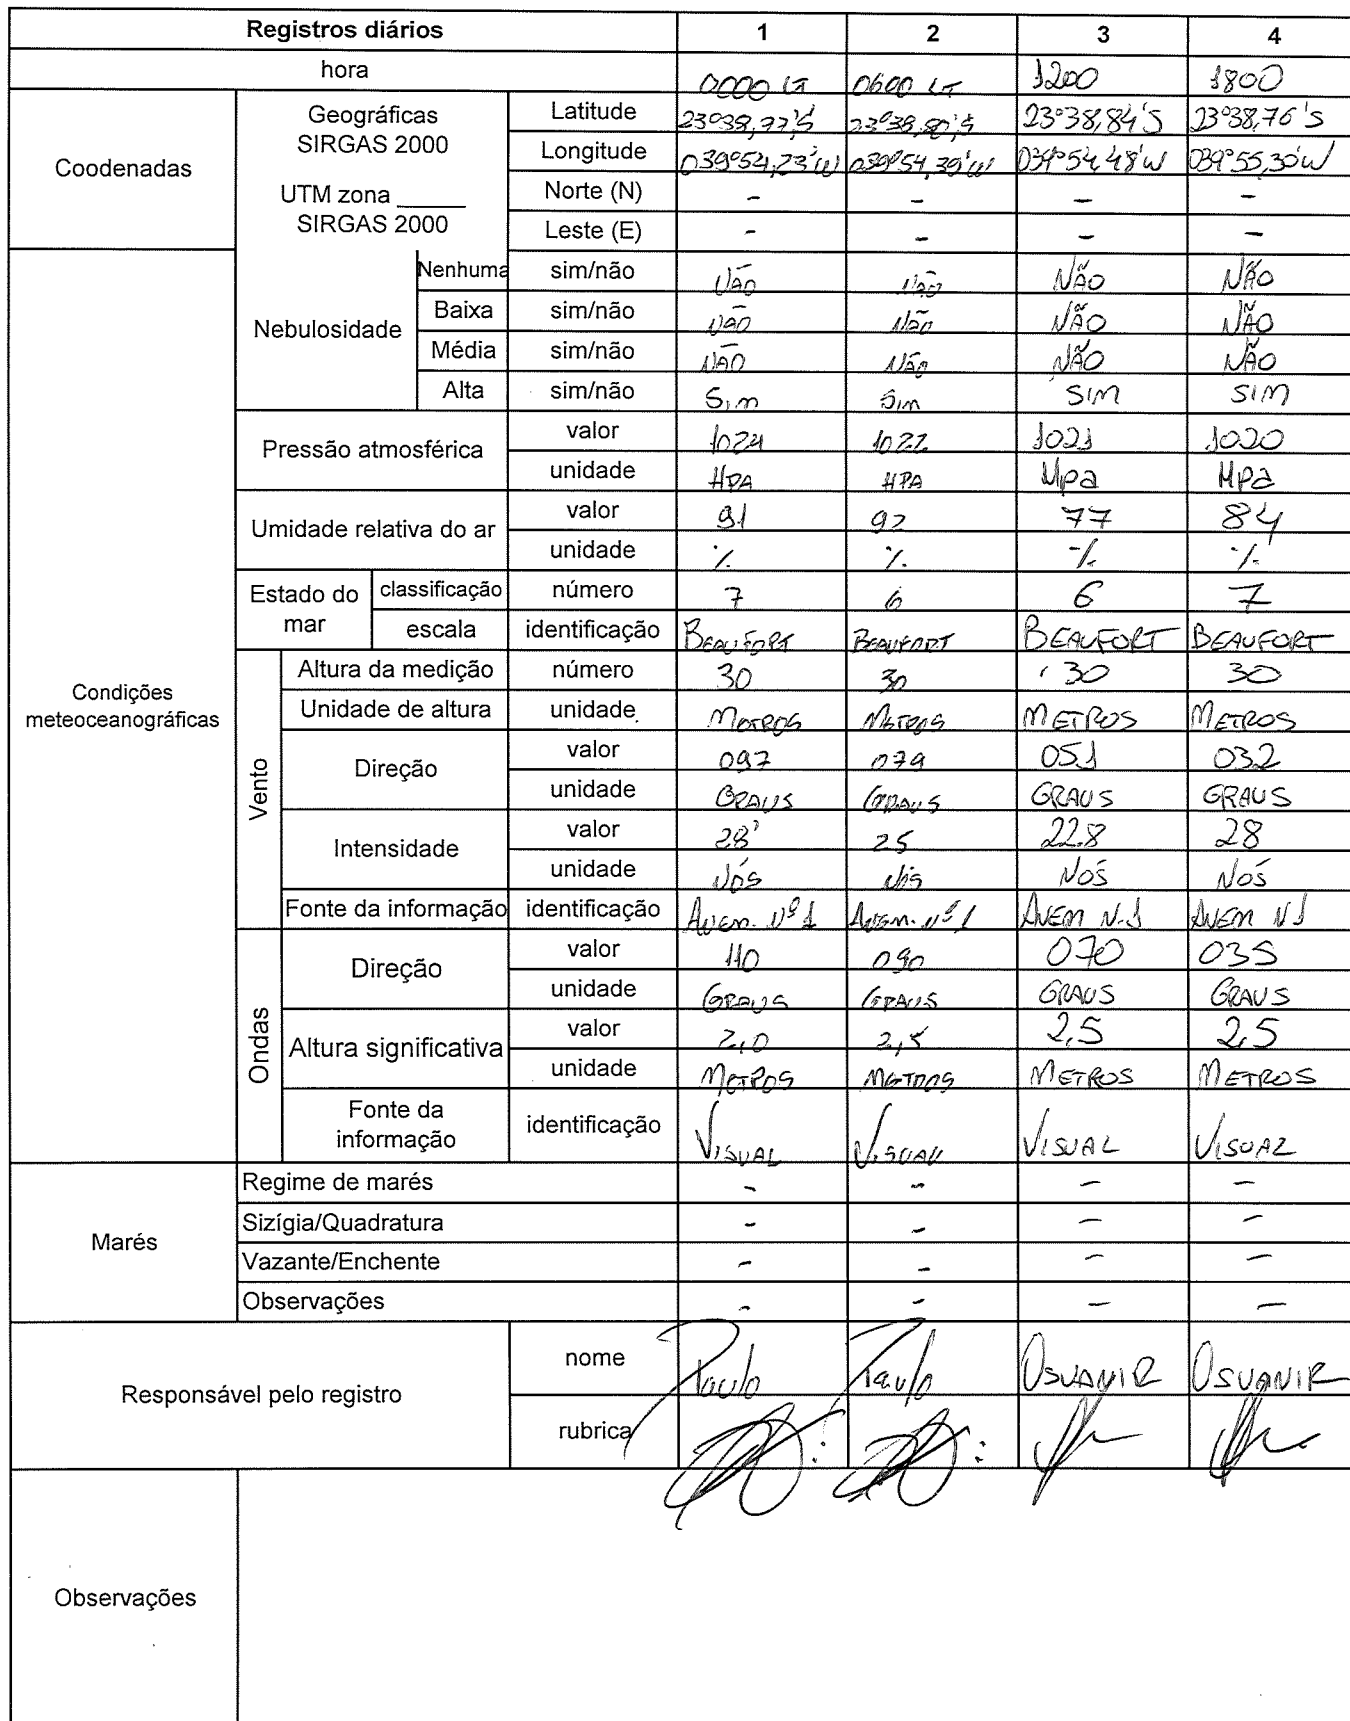 Registros diários 1 2 3 4
hora 0000 LT 0600 LT 1200 1800
Coodenadas
Geográficas
SIRGAS 2000
UTM zona _____
SIRGAS 2000
Latitude 23°38,77'S 23°38,80'S 23°38,84'S 23°38,76'S
Longitude 039°54,23'W 039°54,39'W 039°54,48'W 039°55,30'W
Norte (N) - - - -
Leste (E) - - - -
Condições
meteoceanográficas
Nebulosidade
Nenhuma sim/não NÃO NÃO NÃO NÃO
Baixa sim/não NÃO NÃO NÃO NÃO
Média sim/não NÃO NÃO NÃO NÃO
Alta sim/não Sim Sim SIM SIM
Pressão atmosférica
valor 1024 1022 1021 1020
unidade HPA HPA Mpa HPa
Umidade relativa do ar
valor 91 92 77 84
unidade % % % %
Estado do
mar
classificação número 7 6 6 7
escala identificação BEAUFORT BEAUFORT BEAUFORT BEAUFORT
Vento
Altura da medição número 30 30 30 30
Unidade de altura unidade METROS METROS METROS METROS
Direção
valor 097 079 051 032
unidade GRAUS GRAUS GRAUS GRAUS
Intensidade
valor 28 25 22.8 28
unidade NÓS NÓS NOS NOS
Fonte da informação identificação Anem. Nº 1 Anem. Nº 1 ANEM N.1 ANEM N1
Ondas
Direção
valor 110 090 070 035
unidade GRAUS GRAUS GRAUS GRAUS
Altura significativa
valor 2,0 2,5 2,5 2,5
unidade METROS METROS METROS METROS
Fonte da
informação
identificação VISUAL VISUAL VISUAL VISUAL
Marés
Regime de marés - - - -
Sizígia/Quadratura - - - -
Vazante/Enchente - - - -
Observações - - - -
Responsável pelo registro
nome Paulo Paulo OSVANIR OSVANIR
rubrica
Observações